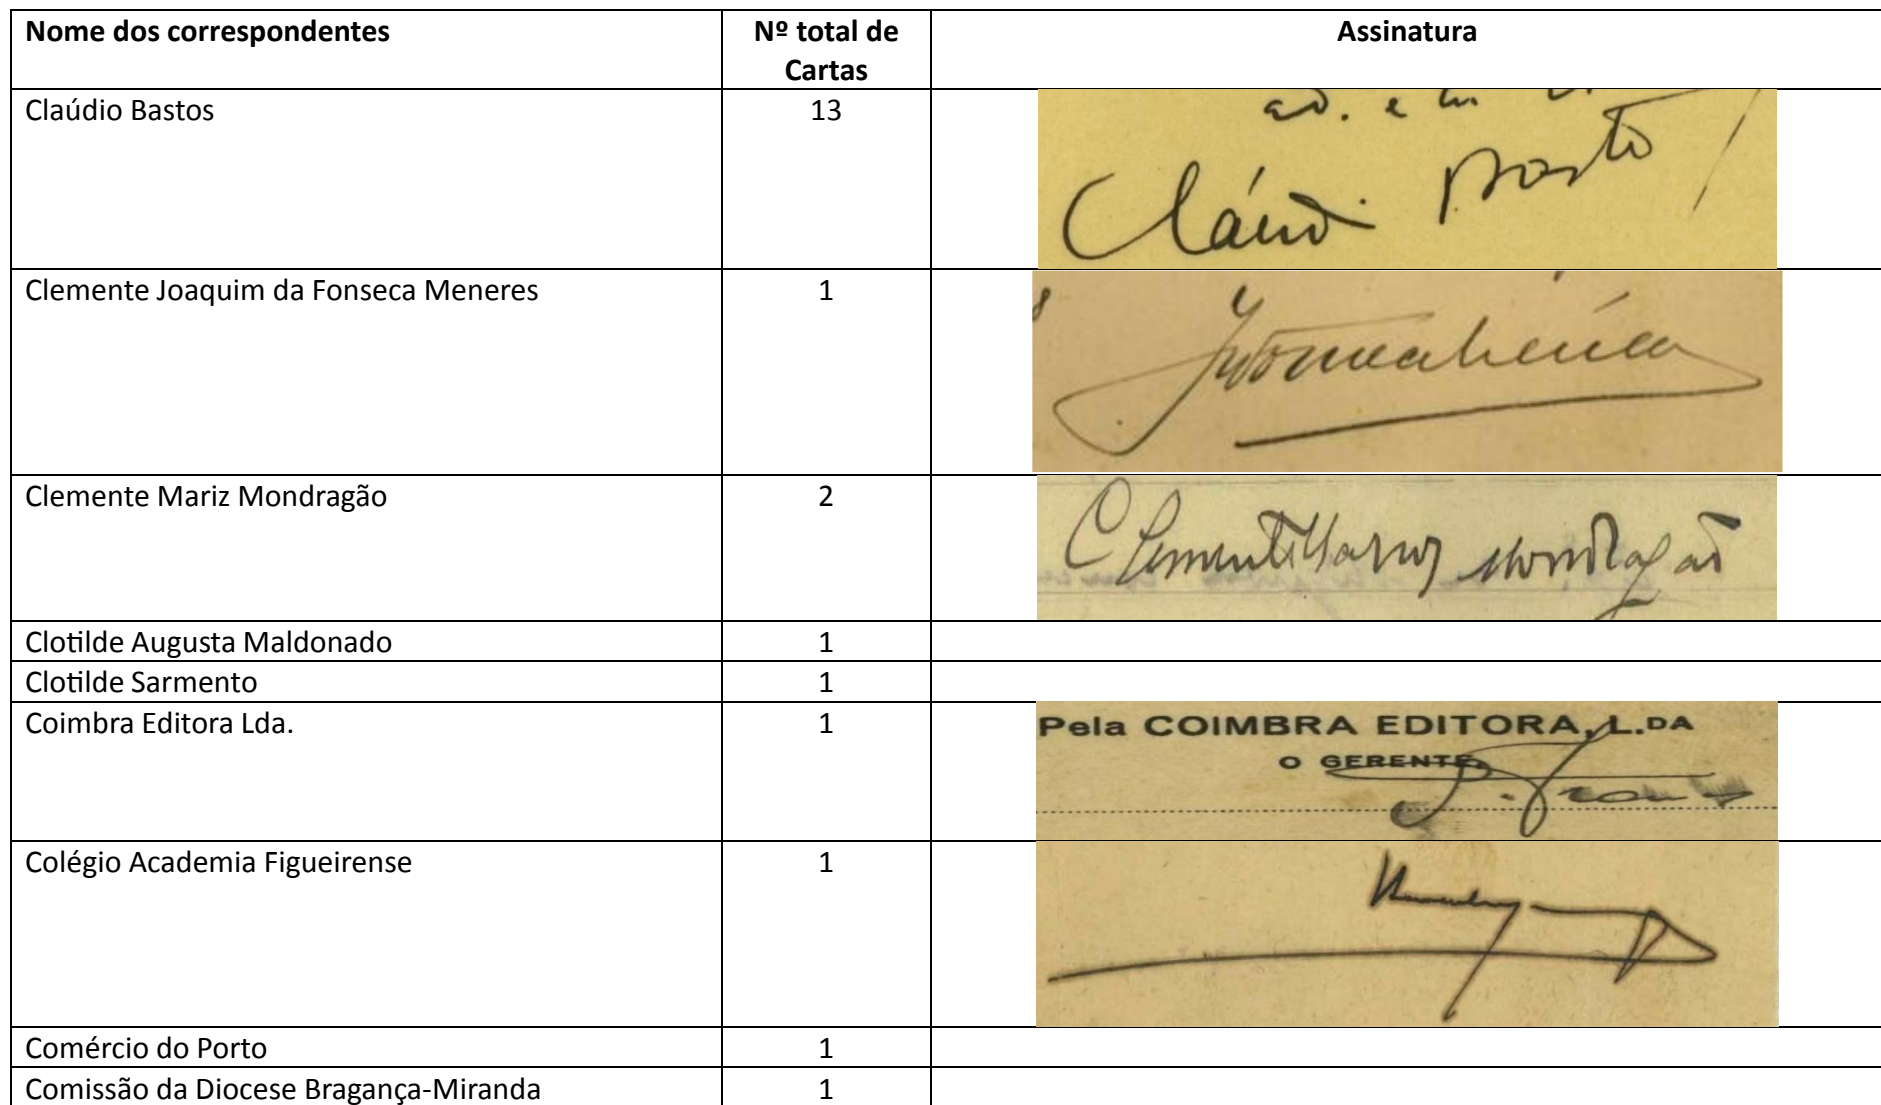 Nome dos correspondentes
Nº total de Cartas
Assinatura
Claúdio Bastos
13
Cláudio Basto
Clemente Joaquim da Fonseca Meneres
1
Clemente Mariz Mondragão
2
Clemente Mariz Mondragão
Clotilde Augusta Maldonado
1
Clotilde Sarmento
1
Coimbra Editora Lda.
1
Pela COIMBRA EDITORA, L.DA
O GERENTE,
Colégio Academia Figueirense
1
Comércio do Porto
1
Comissão da Diocese Bragança-Miranda
1